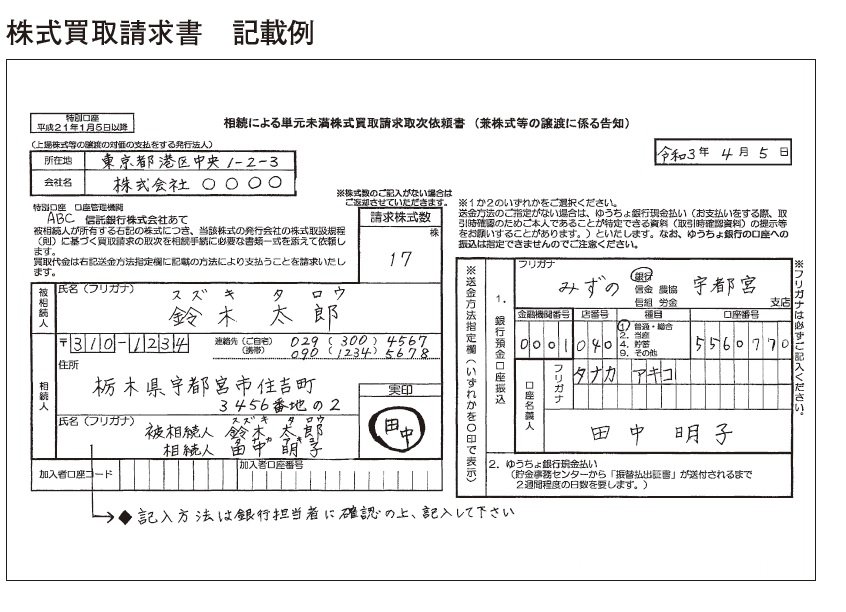 株式買取請求書 記載例
特別口座
平成21年1月5日以降
相続による単元未満株式買取請求取次依頼書（兼株式等の譲渡に係る告知）
令和3年 4月 5日
(上場株式等の譲渡の対価の支払をする発行法人)
所在地 東京都港区中央1-2-3
会社名 株式会社 〇〇〇〇
特別口座 口座管理機関
ABC 信託銀行株式会社あて
被相続人が所有する右記の株式につき、当該株式の発行会社の株式取扱規程
(則)に基づく買取請求の取次を相続手続に必要な書類一式を添えて依頼し
ます。
買取代金は右記送金方法指定欄に記載の方法により支払うことを請求いたし
ます。
※株式数のご記入がない場合は
ご返却させていただきます。
請求株式数
株
17
※1か2のいずれかをご選択ください。
送金方法のご指定がない場合は、ゆうちょ銀行現金払い（お支払いをする際、取
引時確認のためご本人であることが特定できる資料（取引時確認資料）の提示等
をお願いすることがあります。）といたします。なお、ゆうちょ銀行の口座への
振込は指定できませんのでご注意ください。
被相続人
氏名（フリガナ）
スズキ タロウ
鈴木 太郎
相続人
〒310-1234
連絡先（ご自宅） 029 (300) 4567
（携帯） 090 (1234) 5678
住所
栃木県宇都宮市住吉町
3456番地の2
実印
田中
氏名（フリガナ）
スズキ タロウ
被相続人 鈴木 太郎
相続人 田中 明子
加入者口座コード
加入者口座番号
◆記入方法は銀行担当者に確認の上、記入して下さい
※送金方法指定欄（いずれかを〇印で表示）
1．銀行預金口座振込
フリガナ
みずの 銀行 宇都宮
信金 農協
信組 労金 支店
金融機関番号 店番号 種目 口座番号
0001 040 5560770
1 普通・総合
2. 当座
4. 貯蓄
9. その他
口座名義人
フリガナ
タナカ アキコ
田中 明子
2．ゆうちょ銀行現金払い
（貯金事務センターから「振替払出証書」が送付されるまで
2週間程度の日数を要します。）
※フリガナは必ずご記入ください。